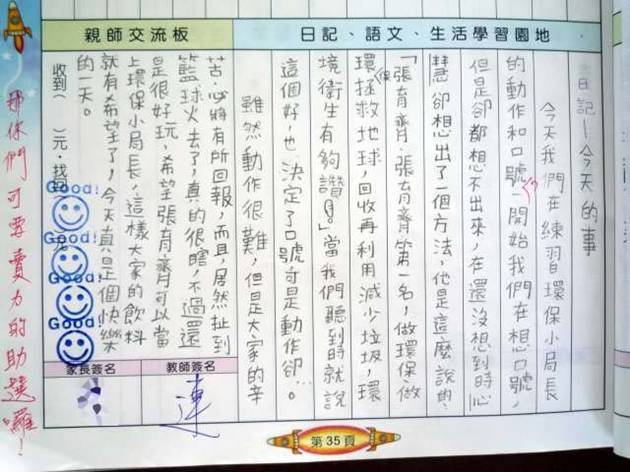 日記、語文、生活學習園地
親師交流板
日記—今天的事
今天我們在練習環保小局長
的動作和口號,一開始我們在想口號,
但是卻都想不出來,在還沒想到時心
慧卻想出了一個方法,他是這麼說的:
「張育齊、張育齊第一名,做環保做
環拯救地球,回收再利用減少垃圾,環
境衛生有夠讚!」當我們聽到時就說
這個好,也決定了口號可是動作卻…。
雖然動作很難,但是大家的辛
苦必將有所回報,而且,居然扯到
籃球火去了,真的很瞎,不過還
是很好玩,希望張育齊可以當
上環保小局長,這樣大家的飲料
就有希望了,今天真是個快樂
的一天。
收到( )元,找回( )元
Good!
Good!
Good!
Good!
教師簽名
家長簽名
連
那你們可要賣力的助選囉!
第35頁